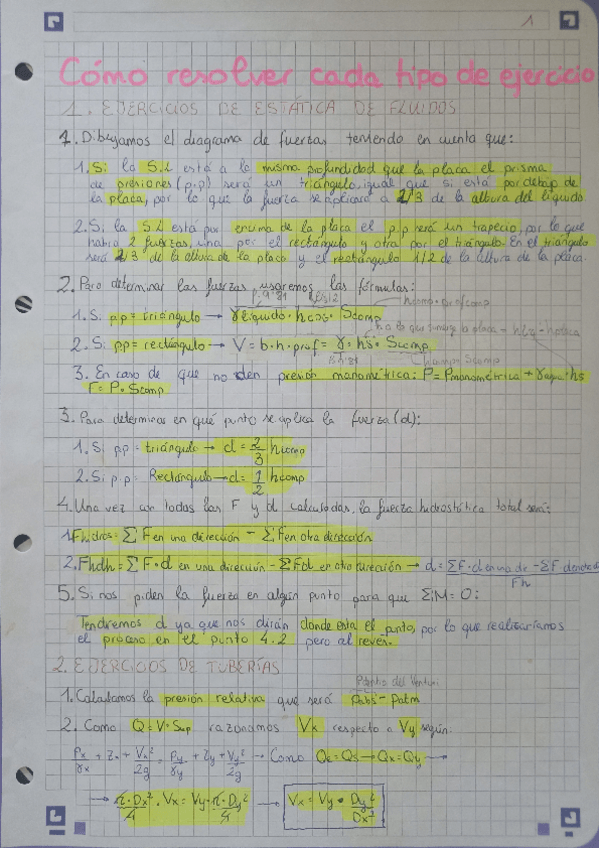 1
Cómo resolver cada tipo de ejercicio
1. EJERCICIOS DE ESTÁTICA DE FLUIDOS
1. Dibujamos el diagrama de fuerzas teniendo en cuenta que:
1. Si la S.L está a la misma profundidad que la placa el prisma
de presiones (p.p) será un triángulo, igual que si está por debajo de
la placa, por lo que la fuerza se aplicará a 2/3 de la altura del líquido.
2. Si la S.L está por encima de la placa el p.p será un trapecio, por lo que
habrá 2 fuerzas, una por el rectángulo y otra por el triángulo. En el triángulo
será 2/3 de la altura de la placa y el rectángulo 1/2 de la altura de la placa.
2. Para determinar las fuerzas usaremos las fórmulas:
1. Si pp = triángulo → γlíquido · hcdg · Scomp
hcomp · profcomp
2. Si pp = rectángulo → V = b · h · prof = γ · hs · Scomp
3. En caso de que no den presión manométrica: P = Pmanométrica + γagua · hs
F = P · Scomp
3. Para determinar en qué punto se aplica la fuerza (d):
1. Si pp = triángulo → d = 2/3 hcomp
2. Si p.p = Rectángulo → d = 1/2 hcomp
4. Una vez en todas las F y d calculadas, la fuerza hidrostática total será:
1. Fhidros = Σ F en una dirección - Σ F en otra dirección
2. Fhdh = Σ F · d en una dirección - Σ Fd en otra dirección → d = ΣF · d en una dir - ΣF · d en otra di / Fh
5. Si nos piden la fuerza en algún punto para que ΣM = 0:
Tendremos d ya que nos dirán donde está el punto, por lo que realizaríamos
el proceso en el punto 4.2 pero al revés.
2. EJERCICIOS DE TUBERÍAS
1. Calculamos la presión relativa que será Pabs - Patm
2. Como Q = V · Sup razonamos Vx respecto a Vy según:
Px/γx + Zx + Vx²/2g = Py/γy + Zy + Vy²/2g → Como Qe = Qs → Qx = Qy →
→ π · Dx²/4 · Vx = Vy · π · Dy²/4 → Vx = Vy · Dy²/Dx²